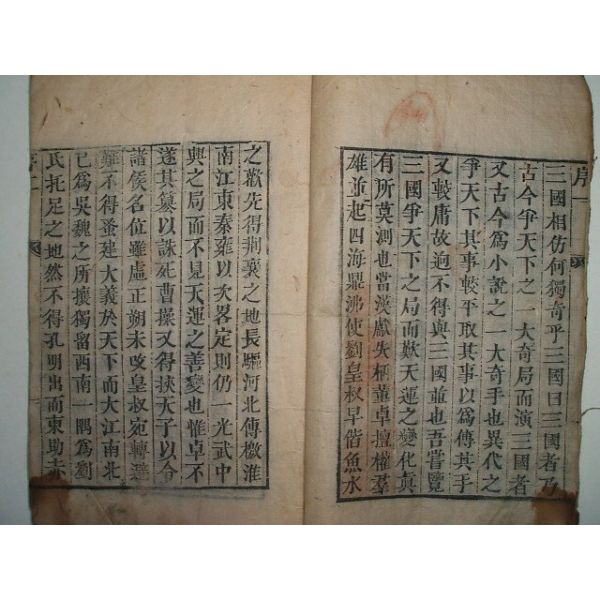 序一
三國相仿何獨奇乎三國曰三國者乃
古今爭天下之一大奇局而演三國者
又古今爲小說之一大奇手也異代之
爭天下其事較平取其事以爲傳其手
又較庸故迥不得與三國並也吾嘗覽
三國爭天下之局而歎天運之變化真
有所莫測也當漢獻失柄董卓擅權羣
雄並起四海鼎沸使劉皇叔早偕魚水
之歡先得荆襄之地長驅河北傳檄淮
南江東秦雍以次畧定則仍一光武中
興之局而不見天運之善變也惟卓不
遂其篡以誅死曹操又得挾天子以令
諸侯名位雖虛正朔未改皇叔宛轉避
難不得蚤建大義於天下而大江南北
已爲吳魏之所攘獨留西南一隅爲劉
氏托足之地然不得孔明出而東助赤
序二